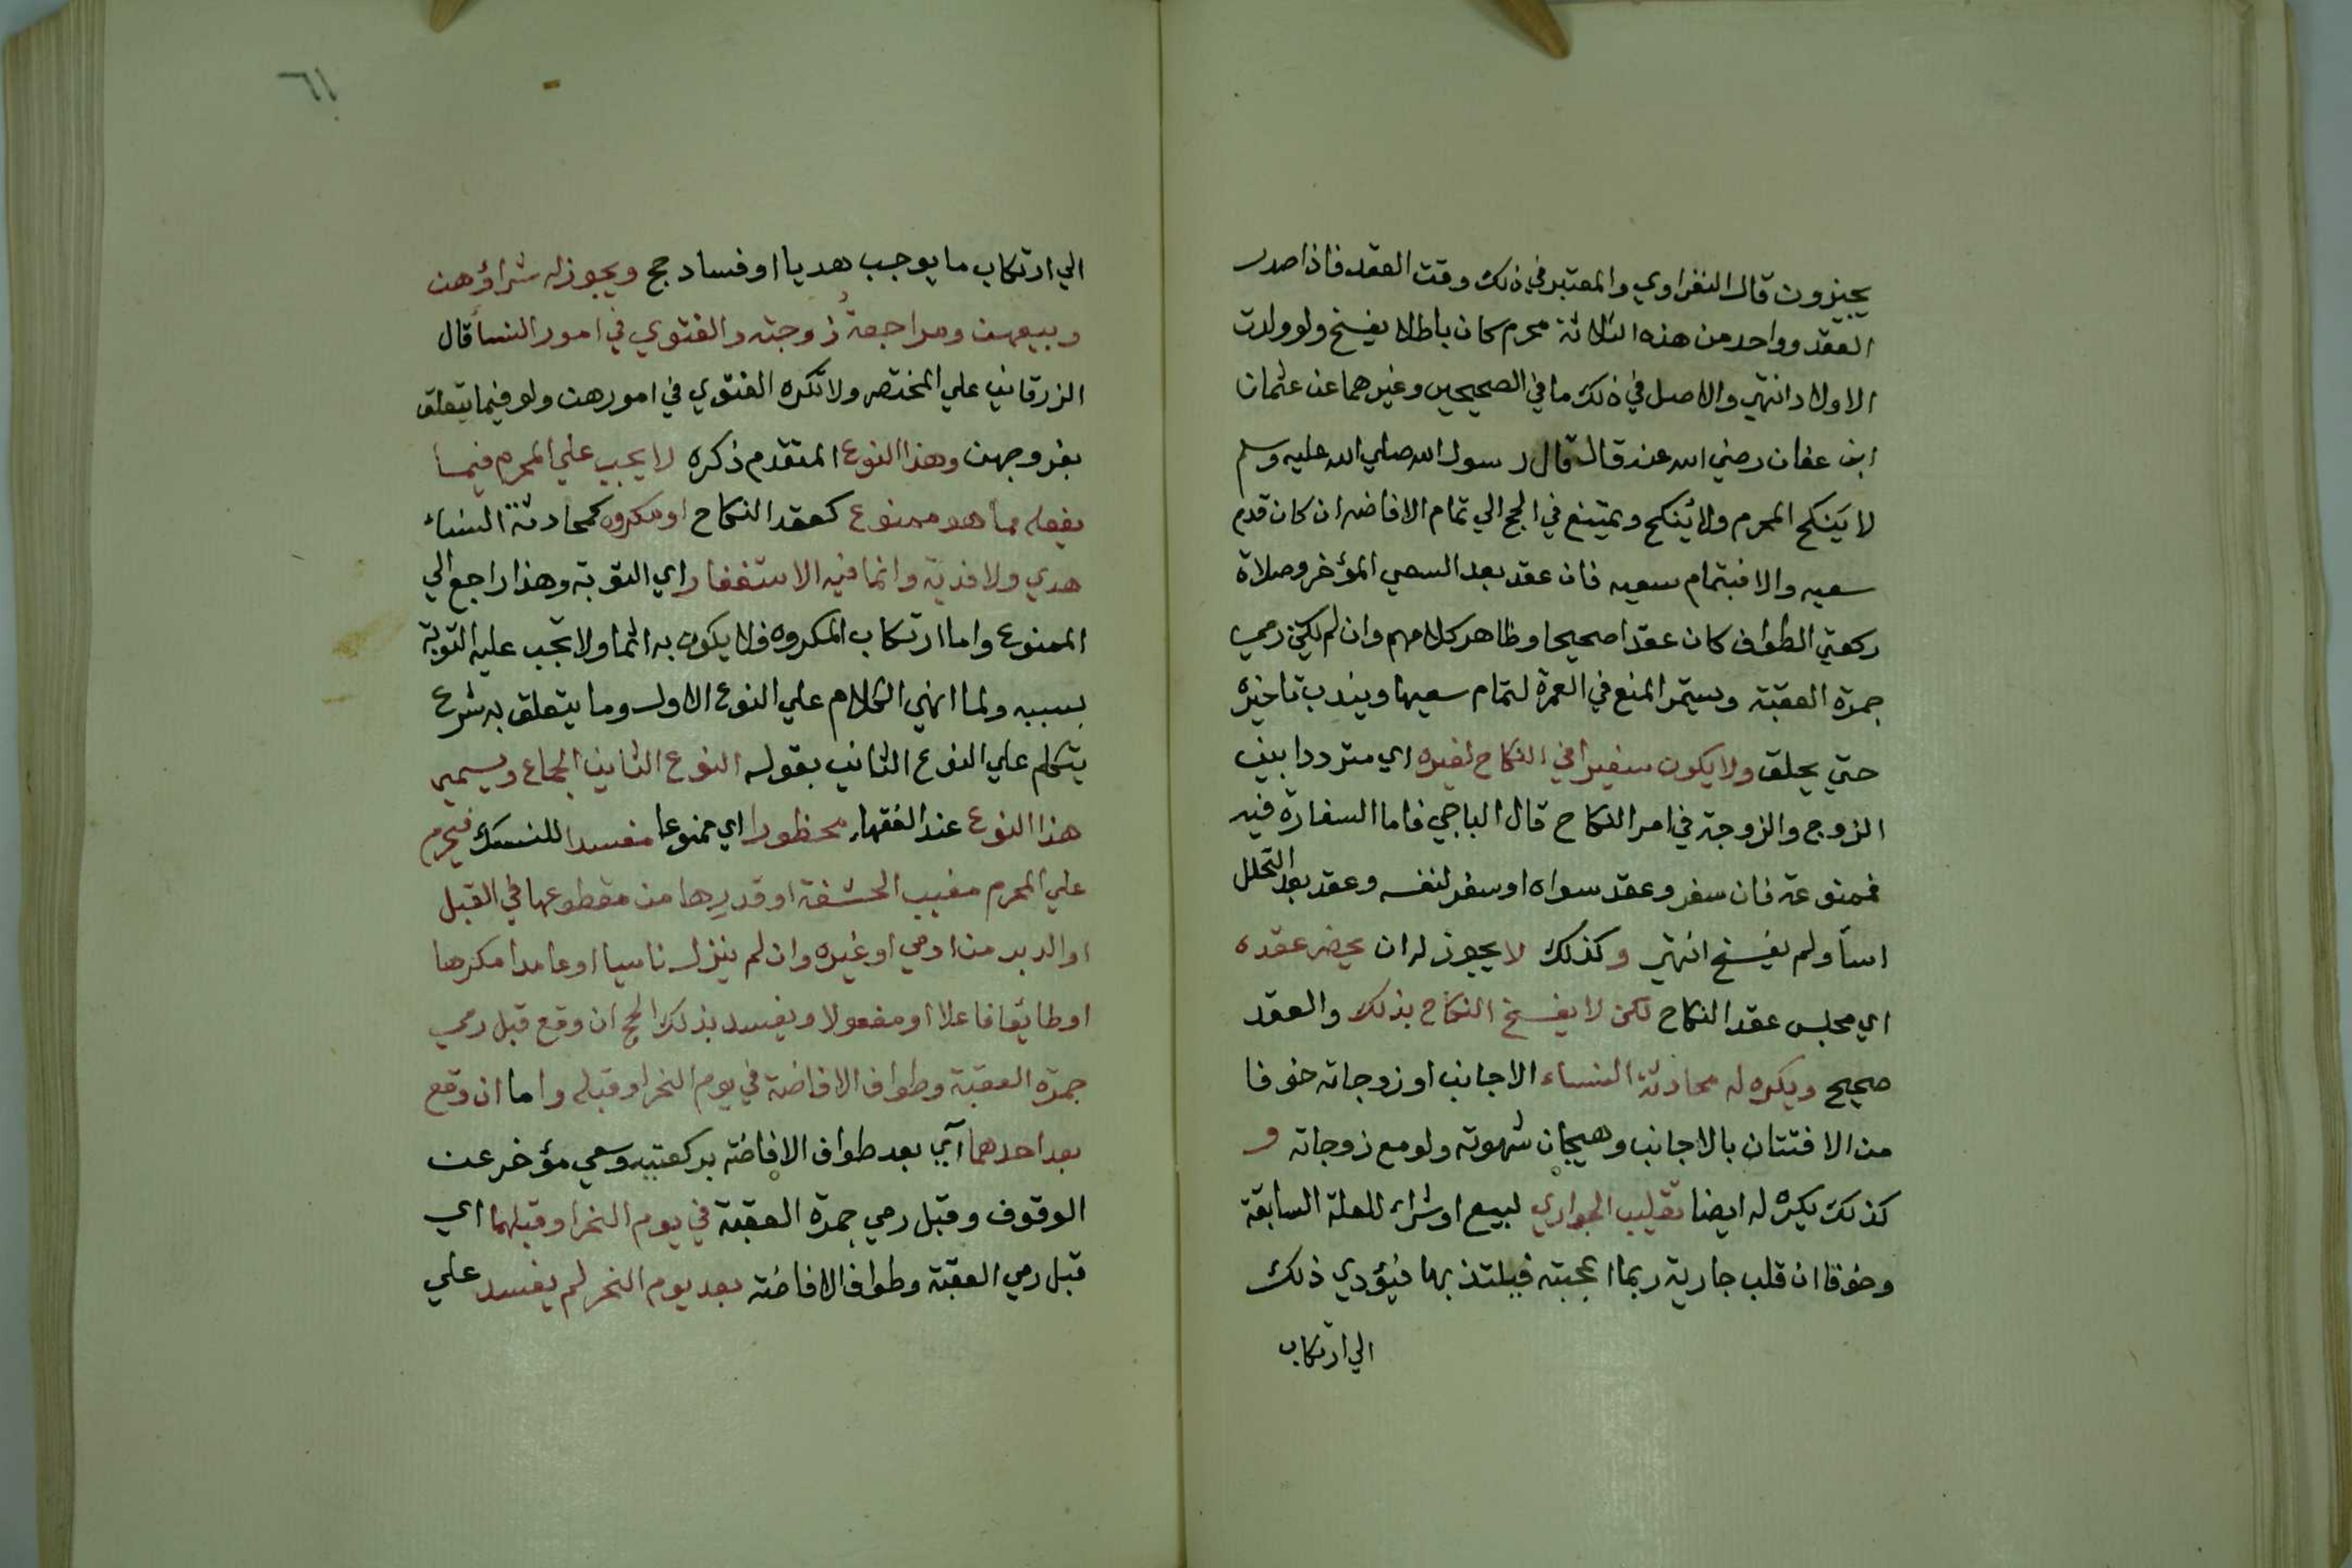 يجيزون قال النفراوي والمعتبر في ذلك وقت العقد فاذا صدر
العقد وواحد من هذه الثلاثة محرم كان باطلا يفسخ ولو ولدت
الاولاد انتهي والاصل في ذلك ما في الصحيحين وغيرهما عن عثمان
ابن عفان رضي الله عنه قال قال رسول الله صلي الله عليه وسلم
لا يَنكح المحرم ولا يُنكح ويمتنع في الحج الي تمام الافاضه ان كان قدم
سعيه والا فبتمام سعيه فان عقد بعد السعي المؤخر وصلاة
ركعتي الطواف كان عقدا صحيحا وظاهر كلامهم وان لم يكن رمي
جمرة العقبة ويستمر المنع في العمرة لتمام سعيها ويندب تاخيره
حتي يحلق ولا يكون سفيرا في النكاح لغيره اي مترددا بين
الزوج والزوجة في امر النكاح قال الباجي فاما السفارة فيه
فممنوعة فان سفر وعقد سواه او سفر لنفسه وعقد بعد التحلل
اسأ ولم يفسخ انتهي وكذلك لا يجوز له ان يحضر عقده
اي مجلس عقد النكاح لكن لا يفسخ النكاح بذلك والعقد
صحيح ويكره له محادثة النساء الاجانب او زوجاته خوفا
من الافتتان بالاجانب وهيجان شهوته ولو مع زوجاته و
كذلك يكره له ايضا تقليب الجواري لبيع او شراء للعلة السابقة
وخوفا ان قلب جارية ربما اعجبته فيلتذ بها فيؤدي ذلك
الي ارتكاب
٦١
الي ارتكاب ما يوجب هديا او فساد حج ويجوز له شراؤهن
وبيعهن ومراجعة زوجته والفتوي في امور النسأ قال
الزرقاني علي المختصر ولا تكره الفتوي في امورهن ولو فيما يتعلق
بفروجهن وهذا النوع المتقدم ذكره لا يجب علي المحرم فيما
يفعله مما هو ممنوع كعقد النكاح او مكروه كمحادثة النساء
هدي ولا فدية وانما فيه الاستغفار اي التوبة وهذا راجع الي
الممنوع واما ارتكاب المكروه فلا يكون به اثما ولا تجب عليه التوبة
بسببه ولما انهي الكلام علي النوع الاول وما يتعلق به شرع
يتكلم علي النوع الثاني بقوله النوع الثاني الجماع ويسمي
هذا النوع عند الفقهاء محظورا اي ممنوعا مفسدا للنسك فيحرم
علي المحرم مغيب الحشفة او قدرها من مقطوعها في القبل
او الدبر من ادمي او غيره وان لم ينزل ناسيا او عامدا مكرها
او طايعا فاعلا او مفعولا ويفسد بذلك الحج ان وقع قبل رمي
جمرة العقبة وطواف الافاضة في يوم النحر او قبله واما ان وقع
بعد احدهما آي بعد طواف الافاضة بركعتيه وسعي مؤخر عن
الوقوف وقبل رمي جمرة العقبة في يوم النحر او قبلهما اي
قبل رمي العقبة وطواف الافاضة بعد يوم النحر لم يفسد علي